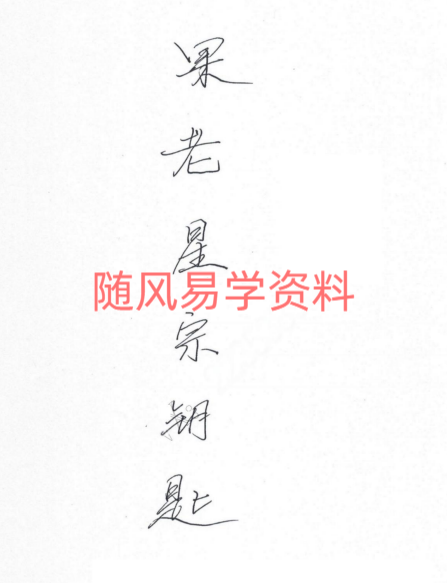 果老星宗钥匙
随风易学资料